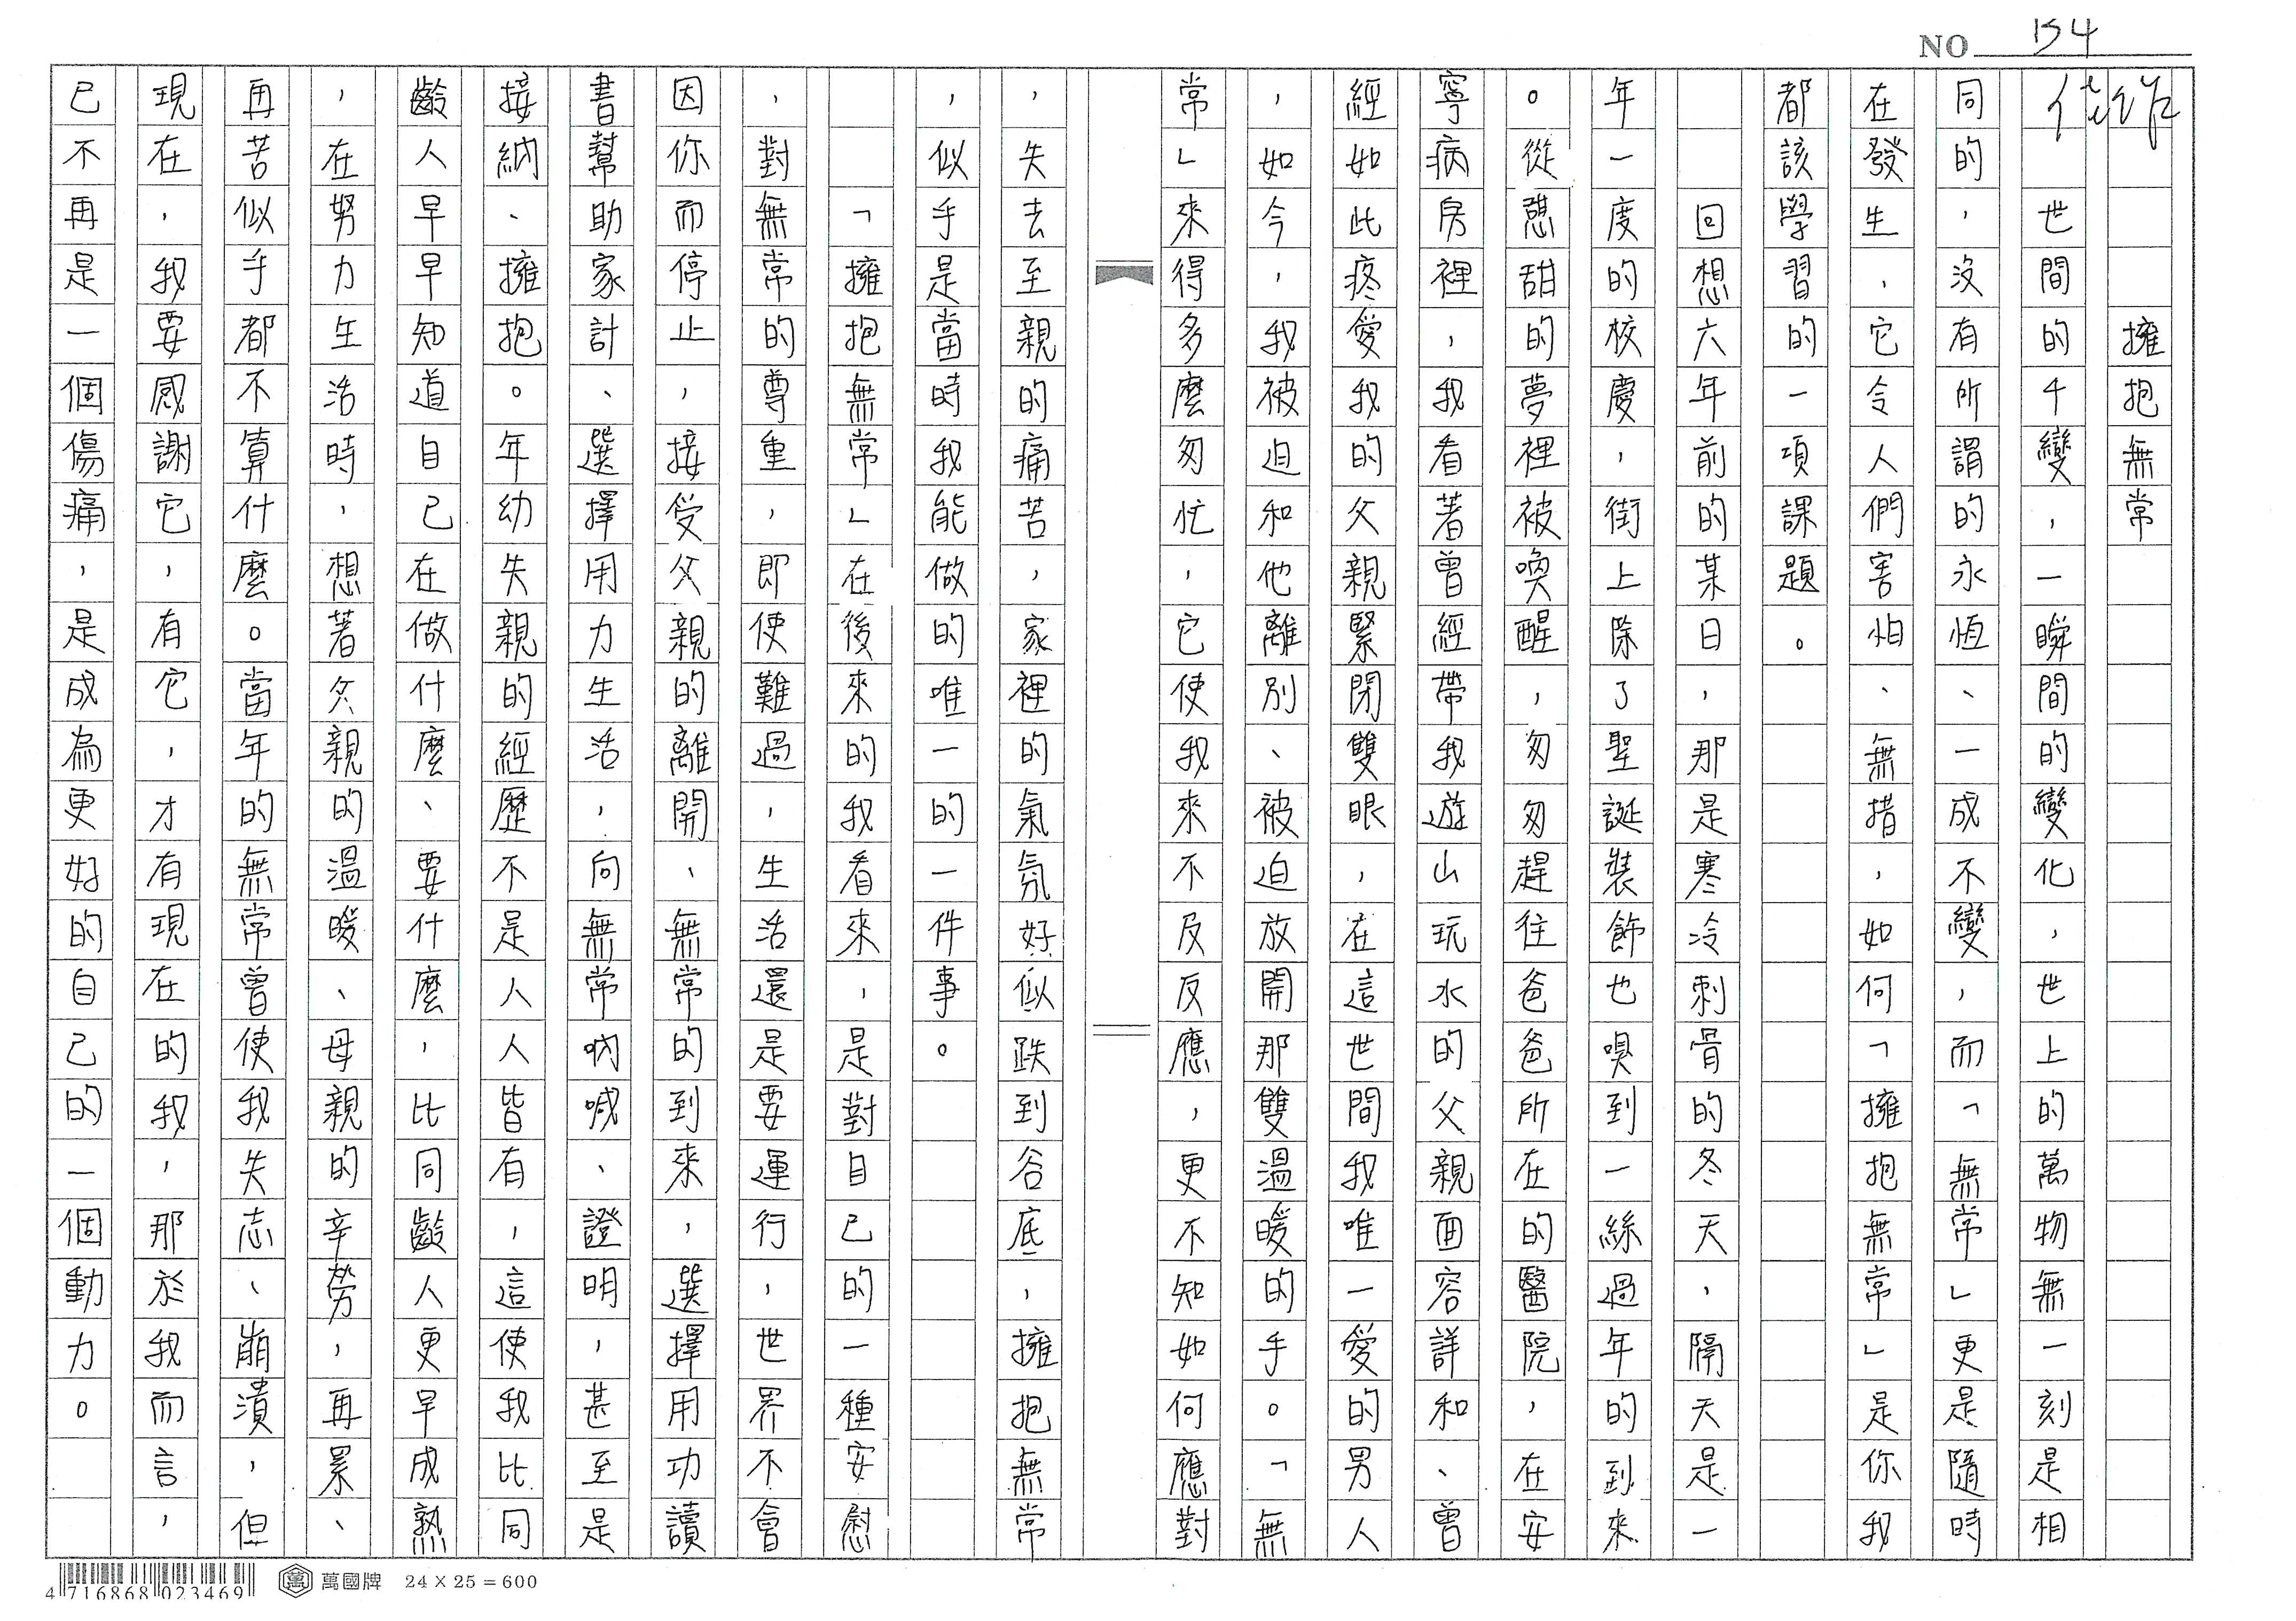 NO 134
佳作
擁抱無常
世間的千變,一瞬間的變化,世上的萬物無一刻是相
同的,沒有所謂的永恆、一成不變,而「無常」更是隨時
在發生,它令人們害怕、無措,如何「擁抱無常」是你我
都該學習的一項課題。
回想六年前的某日,那是寒冷刺骨的冬天,隔天是一
年一度的校慶,街上除了聖誕裝飾也嗅到一絲過年的到來
。從憩甜的夢裡被喚醒,匆匆趕往爸爸所在的醫院,在安
寧病房裡,我看著曾經帶我遊山玩水的父親面容詳和、曾
經如此疼愛我的父親緊閉雙眼,在這世間我唯一愛的男人
,如今,我被迫和他離別、被迫放開那雙溫暖的手。「無
常」來得多麼匆忙,它使我來不及反應,更不知如何應對
,失去至親的痛苦,家裡的氣氛好似跌到谷底,擁抱無常
,似乎是當時我能做的唯一的一件事。
「擁抱無常」在後來的我看來,是對自己的一種安慰
,對無常的尊重,即使難過,生活還是要運行,世界不會
因你而停止,接受父親的離開、無常的到來,選擇用功讀
書幫助家計、選擇用力生活,向無常吶喊、證明,甚至是
接納、擁抱。年幼失親的經歷,不是人人皆有,這使我比同
齡人早早知道自己在做什麼、要什麼,比同齡人更早成熟
,在努力生活時,想著父親的溫暖、母親的辛勞,再累、
再苦似乎都不算什麼。當年的無常曾使我失志、崩潰,但
現在,我要感謝它,有它,才有現在的我,那於我而言,
已不再是一個傷痛,是成為更好的自己的一個動力。
4 716868 023469 萬國牌 24×25=600